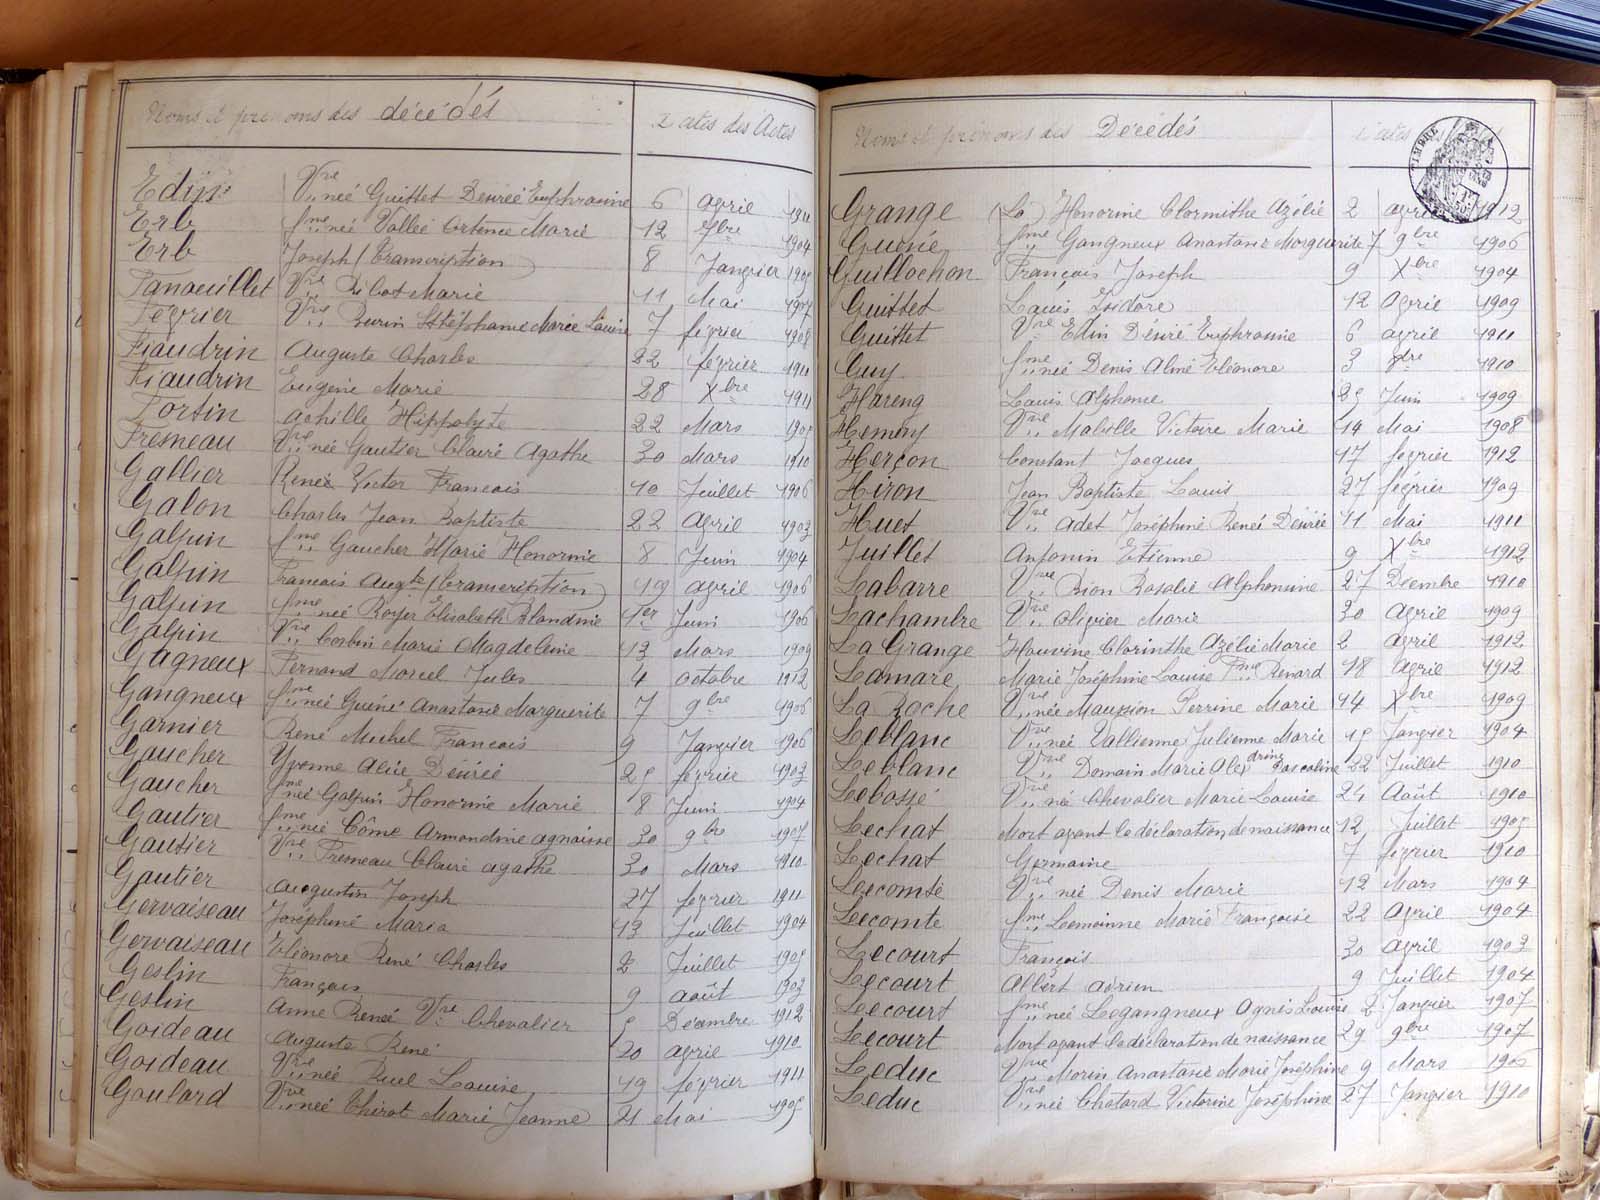 Noms et prénoms des décédés Dates des Actes
Edin Vve née Guittet Désirée Euphrasine 6 avril 1911
Erb fme née Vallée Ortence Marie 12 7bre 1904
Erb Joseph (Transcription) 8 Janvier
Fanoeuillet Vve Ribot Marie 11 Mai 1907
Février Vve Burin Stéphanie Marie Louise 7 février 1908
Fiaudrin Auguste Charles 22 février 1911
Fiaudrin Eugène Marie 28 Xbre 1911
Fortin Achille Hippolyte 22 Mars
Fresneau Vve née Gautier Claire Agathe 30 Mars 1910
Gallier René Victor Francois 10 Juillet 1906
Galon Charles Jean Baptiste 22 Avril 1903
Galpin fme Gaucher Marie Honorine 8 Juin 1904
Galpin Francois Augte (transcription) 19 avril 1906
Galpin fme née Royer Elisabeth Blandine 1er Juin 1906
Galpin Vve Corbin Marie Magdeleine 13 Mars 1909
Gagneux Fernand Marcel Jules 4 octobre 1912
Gangneux fme née Guéné Anastasie Marguerite 7 9bre 1906
Garnier René Michel Francois 9 Janvier 1906
Gaucher Yvonne Alice Désirée 25 février 1903
Gaucher fme née Galpin Honorine Marie 8 Juin 1904
Gautier fme née Côme Armandine agnaisse 30 9bre 1907
Gautier Vve Fresneau Claire agathe 30 Mars 1910
Gautier Augustin Joseph 27 février 1911
Gervaiseau Joséphine Maria 13 Juillet 1904
Gervaiseau Eléonore René Charles 2 Juillet 1905
Geslin François 9 août 1903
Geslin Anne Renée Vve Chevalier 5 Décembre 1912
Goideau Auguste René 20 avril 1910
Goideau Vve née Ruel Louise 19 février 1911
Goulard Vve née Chirot Marie Jeanne 21 Mai 1905
Noms et prénoms des Décédés Dates
TIMBRE
Grange (La) Honorine Clorinthe Azélie 2 avril 1912
Guéné fme Gangneux Anastasie Marguerite 7 9bre 1906
Guillochon François Joseph 9 Xbre 1904
Guittet Louis Isidore 12 Avril 1909
Guittet Vve Edin Désiré Euphrasine 6 avril 1911
Guy fme née Denis Aline Eléonore 3 8bre 1910
Hareng Louis Alphonse 25 Juin 1909
Hemery Vve Mabille Victoire Marie 14 Mai 1908
Herçon Constant Jacques 17 février 1912
Hiron Jean Baptiste Louis 27 février 1909
Huet Vve Adet Joséphine Renée Désirée 11 Mai 1911
Juillet Antonin Etienne 9 Xbre 1912
Labarre Vve Rion Rosalie Alphonsine 27 Décmbre 1910
Lachambre Vve Olivier Marie 30 Avril 1909
La Grange Honorine Clorinthe Azélie Marie 2 Avril 1912
Lamare Marie Joséphine Louise Fme Renard 18 Avril 1912
La Roche Vve née Maupion Perrine Marie 14 Xbre 1909
Leblanc Vve née Vallienne Julienne Marie 15 Janvier 1904
Leblanc Vve Domain Marie Alexdrine Pascaline 22 Juillet 1910
Lebossé Vve née Chevalier Marie Louise 24 Août 1910
Lechat Mort avant la déclaration de naissance 12 Juillet 1905
Lechat Germaine 7 février 1910
Lecomte Vve née Denis Marie 12 Mars 1904
Lecomte fme Lemoinne Marie Françoise 22 Avril 1904
Lecourt François 30 avril 1903
Lecourt Albert Adrien 9 Juillet 1904
Lecourt fme née Legangneux Agnès Louise 2 Janvier 1907
Lecourt Mort avant la déclaration de naissance 29 9bre 1907
Leduc Vve Morin Anastasie Marie Joséphine 9 Mars
Leduc Vve née Chatard Victorine Joséphine 27 Janvier 1910